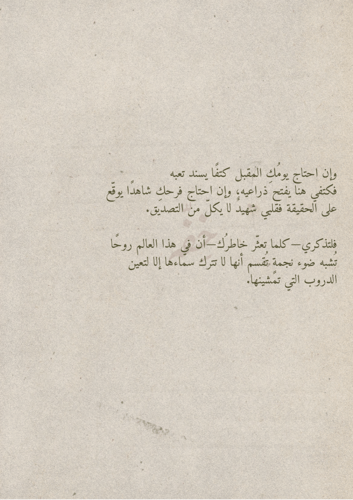 وإن احتاج يومُكِ المقبل كتفًا يسند تعبه
فكتفي هنا يفتح ذراعيه، وإن احتاج فرحكِ شاهدًا يوقّع
على الحقيقة فقلبي شهيدٌ لا يكلّ من التصديق.
فلتذكري—كلما تعثّر خاطرُك—أن في هذا العالم روحًا
تُشبه ضوء نجمةٍ تقسم أنها لا تترك سماءها إلا لتعين
الدروب التي تمشينها.